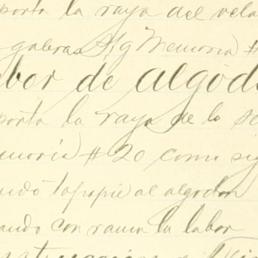 porta la raya del vela
galeras Sig Memoria #
bor de algod
porta la raya de la se
emoria #20 como sig
ando tapapié al algodon
ando con raven la labor